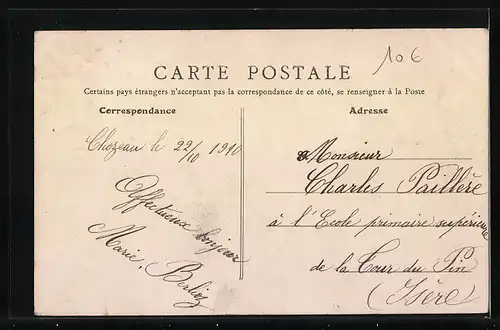 10€
CARTE POSTALE
Certains pays étrangers n'acceptant pas la correspondance de ce côté, se renseigner à la Poste
Correspondance
Adresse
Chozeau le 22/10 1910
Affectueux bonjour
Marie,
Monsieur
Charles Paillère
à l'Ecole primaire supérieure
de la Tour du Pin
(Isère)